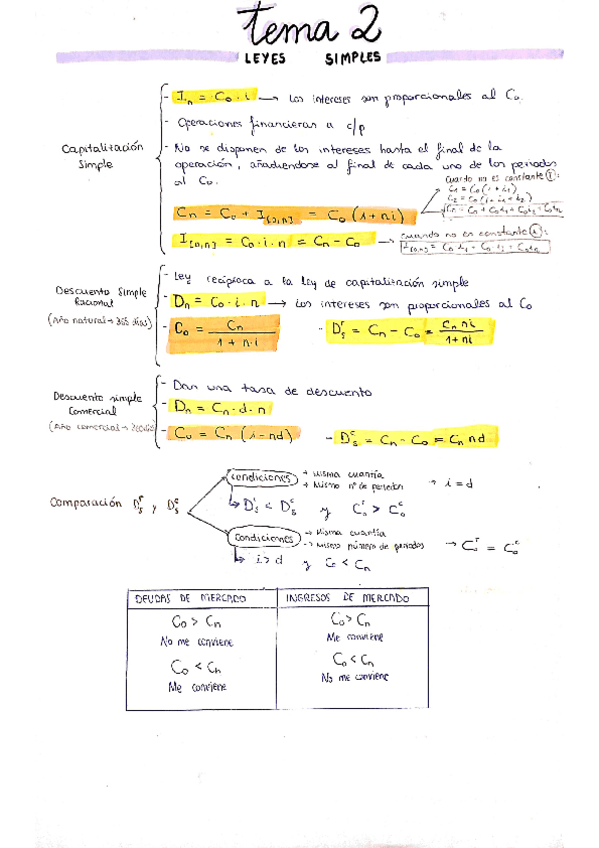 tema 2
LEYES SIMPLES
Capitalización Simple
- In = Co · i → Los intereses son proporcionales al Co.
- Operaciones financieras a c/p
- No se disponen de los intereses hasta el final de la
operación, añadiendose al final de cada uno de los periodos
al Co.
Cn = Co + I[o,n] = Co (1 + ni)
Cuando no es constante
I[o,n] = Co · i · n = Cn - Co
→ cuando no es constante
Descuento Simple Racional
(Año natural → 365 días)
- Ley recíploca a la ley de capitalización simple
- Dn = Co · i · n → Los intereses son proporcionales al Co
- Co = Cn / 1 + n·i
- Dsr = Cn - Co = Cn ni / 1 + ni
Descuento simple Comercial
(Año comercial →
- Dan una tasa de descuento
- Dn = Cn · d · n
- Co = Cn (1 - nd)
- Dsc = Cn - Co = Cn nd
Comparación Dsr y Dsc
condiciones → Misma cuantía
→ Mismo nº de periodos → i = d
↳ Dsr < Dsc y Cor > Coc
condiciones → Misma cuantía
→ Mismo número de periodos → Cor = Coc
↳ i > d y Co < Cn
DEUDAS DE MERCADO
Co > Cn
No me conviene
Co < Cn
Me conviene
INGRESOS DE MERCADO
Co > Cn
Me conviene
Co < Cn
No me conviene